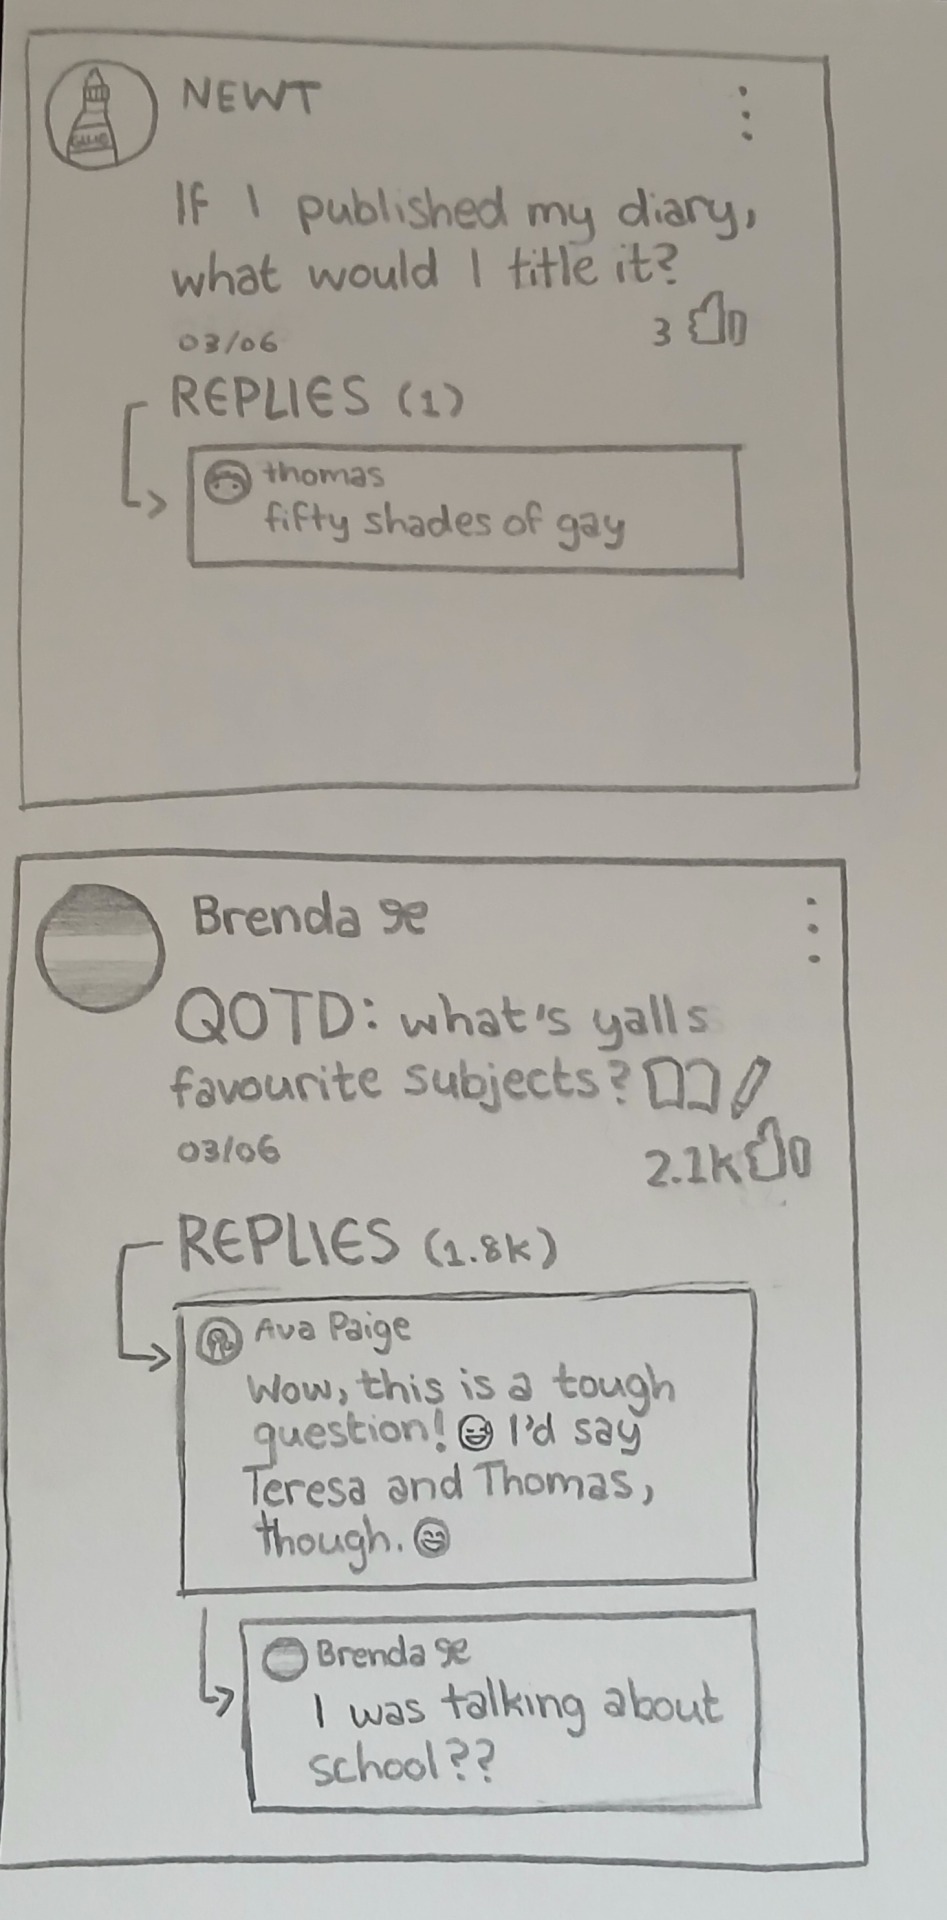 NEWT
If I published my diary,
what would I title it?
03/06
3
REPLIES (1)
thomas
fifty shades of gay
Brenda
QOTD: what's yalls
favourite subjects?
03/06
2.1K
REPLIES (1.8K)
Ava Paige
Wow, this is a tough
question! 😅 I'd say
Teresa and Thomas,
though. 😄
Brenda
I was talking about
school??